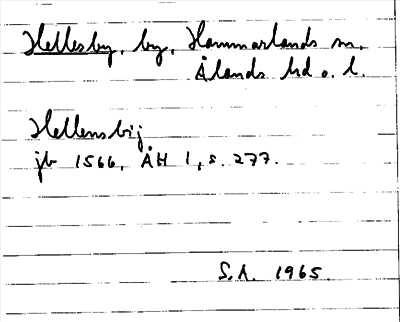 Hellesby, by, Hammarlands sn,
Ålands hd o. l.
Hellensbij
jb 1566, ÅH 1, s. 277.
S.A. 1965.